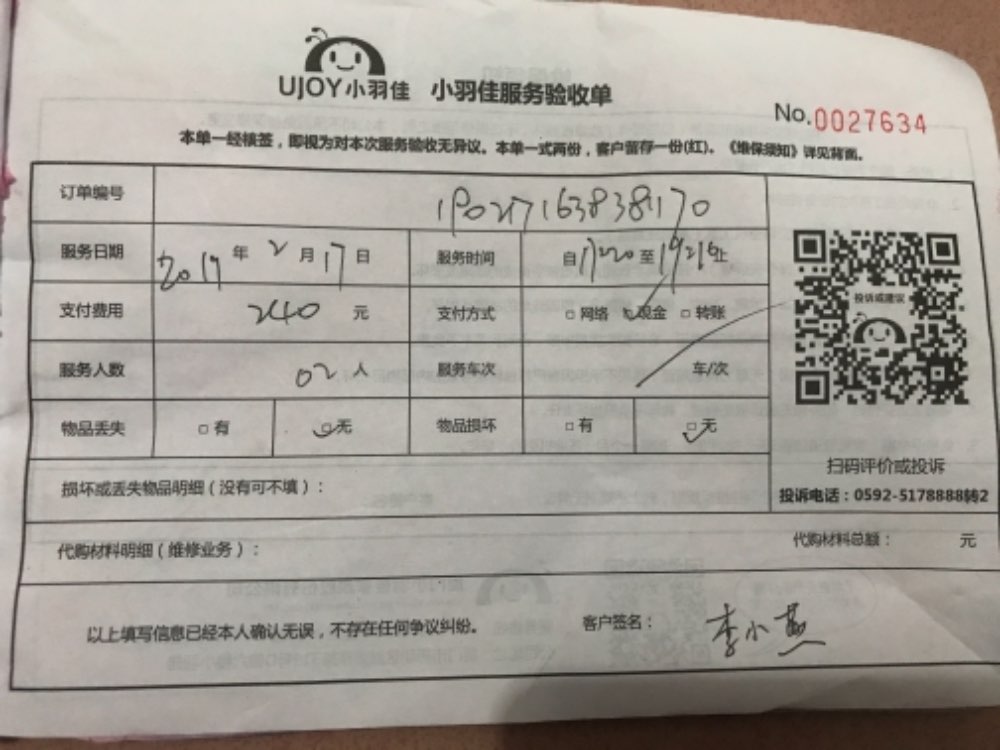 UJOY小羽佳 小羽佳服务验收单
No.0027634
本单一经核签，即视为对本次服务验收无异议。本单一式两份，客户留存一份(红)。《维保须知》详见背面。
订单编号
服务日期 2019 年 2 月 17 日 服务时间 自 至 止
支付费用 240 元 支付方式 □网络 □现金 □转账
投诉或建议
服务人数 02 人 服务车次 车/次
物品丢失 □有 □无 物品损坏 □有 □无
扫码评价或投诉
损坏或丢失物品明细（没有可不填）：
投诉电话：0592-5178888转2
代购材料明细（维修业务）：
代购材料总额： 元
以上填写信息已经本人确认无误，不存在任何争议纠纷。
客户签名： 李小燕